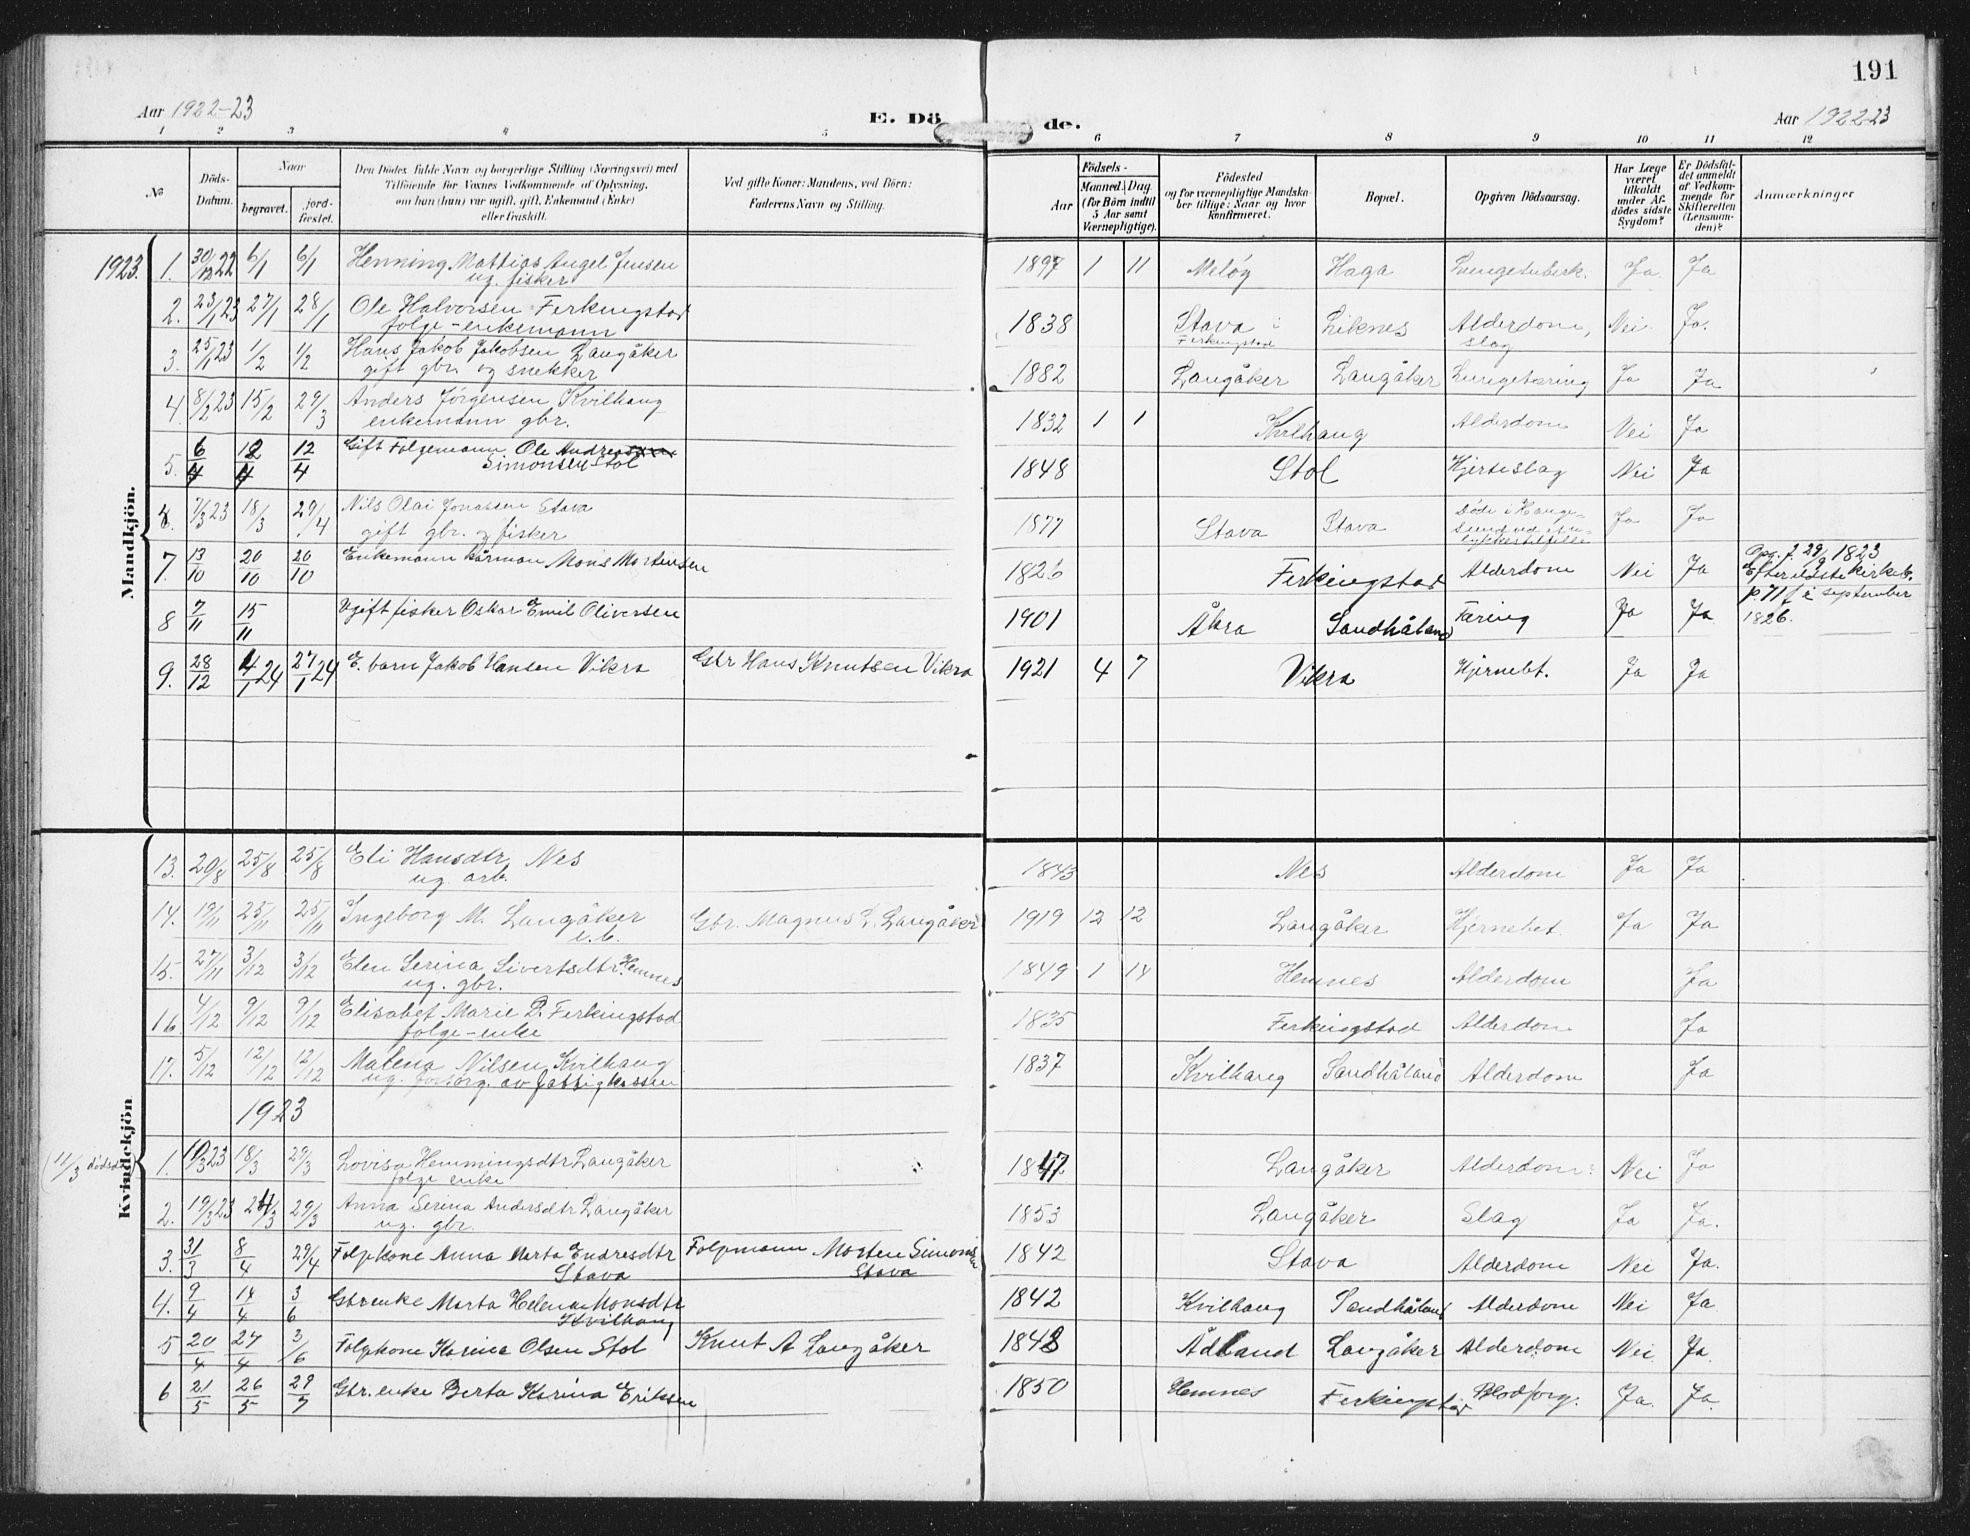 191
Aar 1922-23 E. Dö de. Aar 1922-23
1 2 3 4 5 6 7 8 9 10 11 12
No
Döds-Datum.
Naar
begravet.
jordfæstet.
Den Dödes fulde Navn og borgerlige Stilling (Næringsvei) med
Tilföiende for Voxnes Vedkommende af Oplysning,
om han (hun) var ugift, gift, Enkemand (Enke)
eller fraskilt.
Ved gifte Koner: Mandens, ved Börn:
Faderens Navn og Stilling.
Födsels-
Aar
Maaned. Dag
(for Börn indtil
5 Aar samt
Værnepligtige).
Födested
og for værnepligtige Mandskaber tillige: Naar og hvor
konfirmeret.
Bopæl.
Opgiven Dödsaarsag.
Har Læge
været
tilkaldt
under Afdödes sidste
Sygdom?
Er Dödsfaldet anmeldt
af Vedkommende for
Skifteretten
(Lensmanden)?
Anmærkninger
Mandkjön.
1923. 1. 30/12 22 6/1 6/1 Henning Mattias Angel Jensen 1897 1 11 Meløy Haga Lungetuberk. Ja Ja
ug. fisker
2. 23/1 23 27/1 28/1 Ole Halvorsen Ferkingstad 1838 Stava i Liknes Alderdom, Nei Ja.
folge-enkemann Ferkingstad slag
3. 25/1 23 1/2 1/2 Hans Jakob Jakobsen Langåker 1882 Langåker Langåker Lungetæring Ja Ja
gift gbr. og snekker
4. 8/2 23 15/2 29/3 Anders Jørgensen Kvilhaug 1832 1 1 Kvilhaug Alderdom Nei Ja
enkemann gbr.
5. 6/4 12/4 12/4 Gift Folgemann Ole Andreas 1848 Stol Hjerteslag Nei Ja
Simonsen Stol
7/3 23 18/3 29/4 Nils Olai Jonassen Stava 1877 Stava Stava Døde i Hauge- Ja Ja
gift gbr. og fisker sund ved ulykkestilfelle
7. 13/10 20/10 20/10 Enkemann kårman Mons Mortensen 1826 Ferkingstad Alderdom Nei Ja Opg. f 29/9 1823
Efter eldste kirkeb.
p 71 f i september
1826.
8 7/11 15/11 Ugift fisker Oskar Emil Oliversen 1901 Åkra Sandhåland Tæring Ja Ja
9. 28/12 4/1 24 27/1 24 E. barn Jakob Hansen Vikra Gbr Hans Knutsen Vikra 1921 4 7 Vikra Hjernebt. Ja Ja
Kvindekjön
13. 20/8 25/8 25/8 Eli Hansdtr Nes 1843 Nes Alderdom Ja Ja
ug. arb.
14. 19/11 25/11 25/11 Ingeborg M. Langåker Gbr. Magnus L. Langåker 1919 12 12 Langåker Hjernebet. Ja Ja
e.b.
15. 27/11 3/12 3/12 Elen Serina Sivertsdtr. Hemnes 1849 1 14 Hemnes Alderdom Ja
ug. gbr.
16. 4/12 9/12 9/12 Elisabet Marie D. Ferkingstad 1835 Ferkingstad Alderdom Ja
folge-enke
17. 5/12 12/12 12/12 Malena Nilsen Kvilhaug 1837 Kvilhaug Sandhåland Alderdom Ja
ug. forsørg. av fattigkassen
1923
(11/3 dødsd.) 1. 10/3 23 18/3 29/3 Lovisa Hemmingsdtr Langåker 1847 Langåker Alderdom Nei Ja
folge enke
2. 19/3 23 24/3 29/3 Anna Serina Andersdtr Langåker 1853 Langåker Slag Ja Ja.
ug. gbr.
3. 31/3 8/4 29/4 Folgkone Anna Marta Endresdtr Folgmann Morten Simonsen 1842 Stava Alderdom Nei Ja.
Stava Stava
4. 9/4 14/4 3/6 Gbrenke Marta Helena Monsdtr 1842 Kvilhaug Sandhåland Alderdom Nei Ja
Kvilhaug
5 20/4 27/4 3/6 Folgkone Karina Olsen Stol Knut A Langåker 1848 Ådland Langåker Alderdom Nei Ja
6 21/5 26/5 29/7 Gbr. enke Berta Karina Eriksen 1850 Hemnes Ferkingstad Blodforg. Ja. Ja.